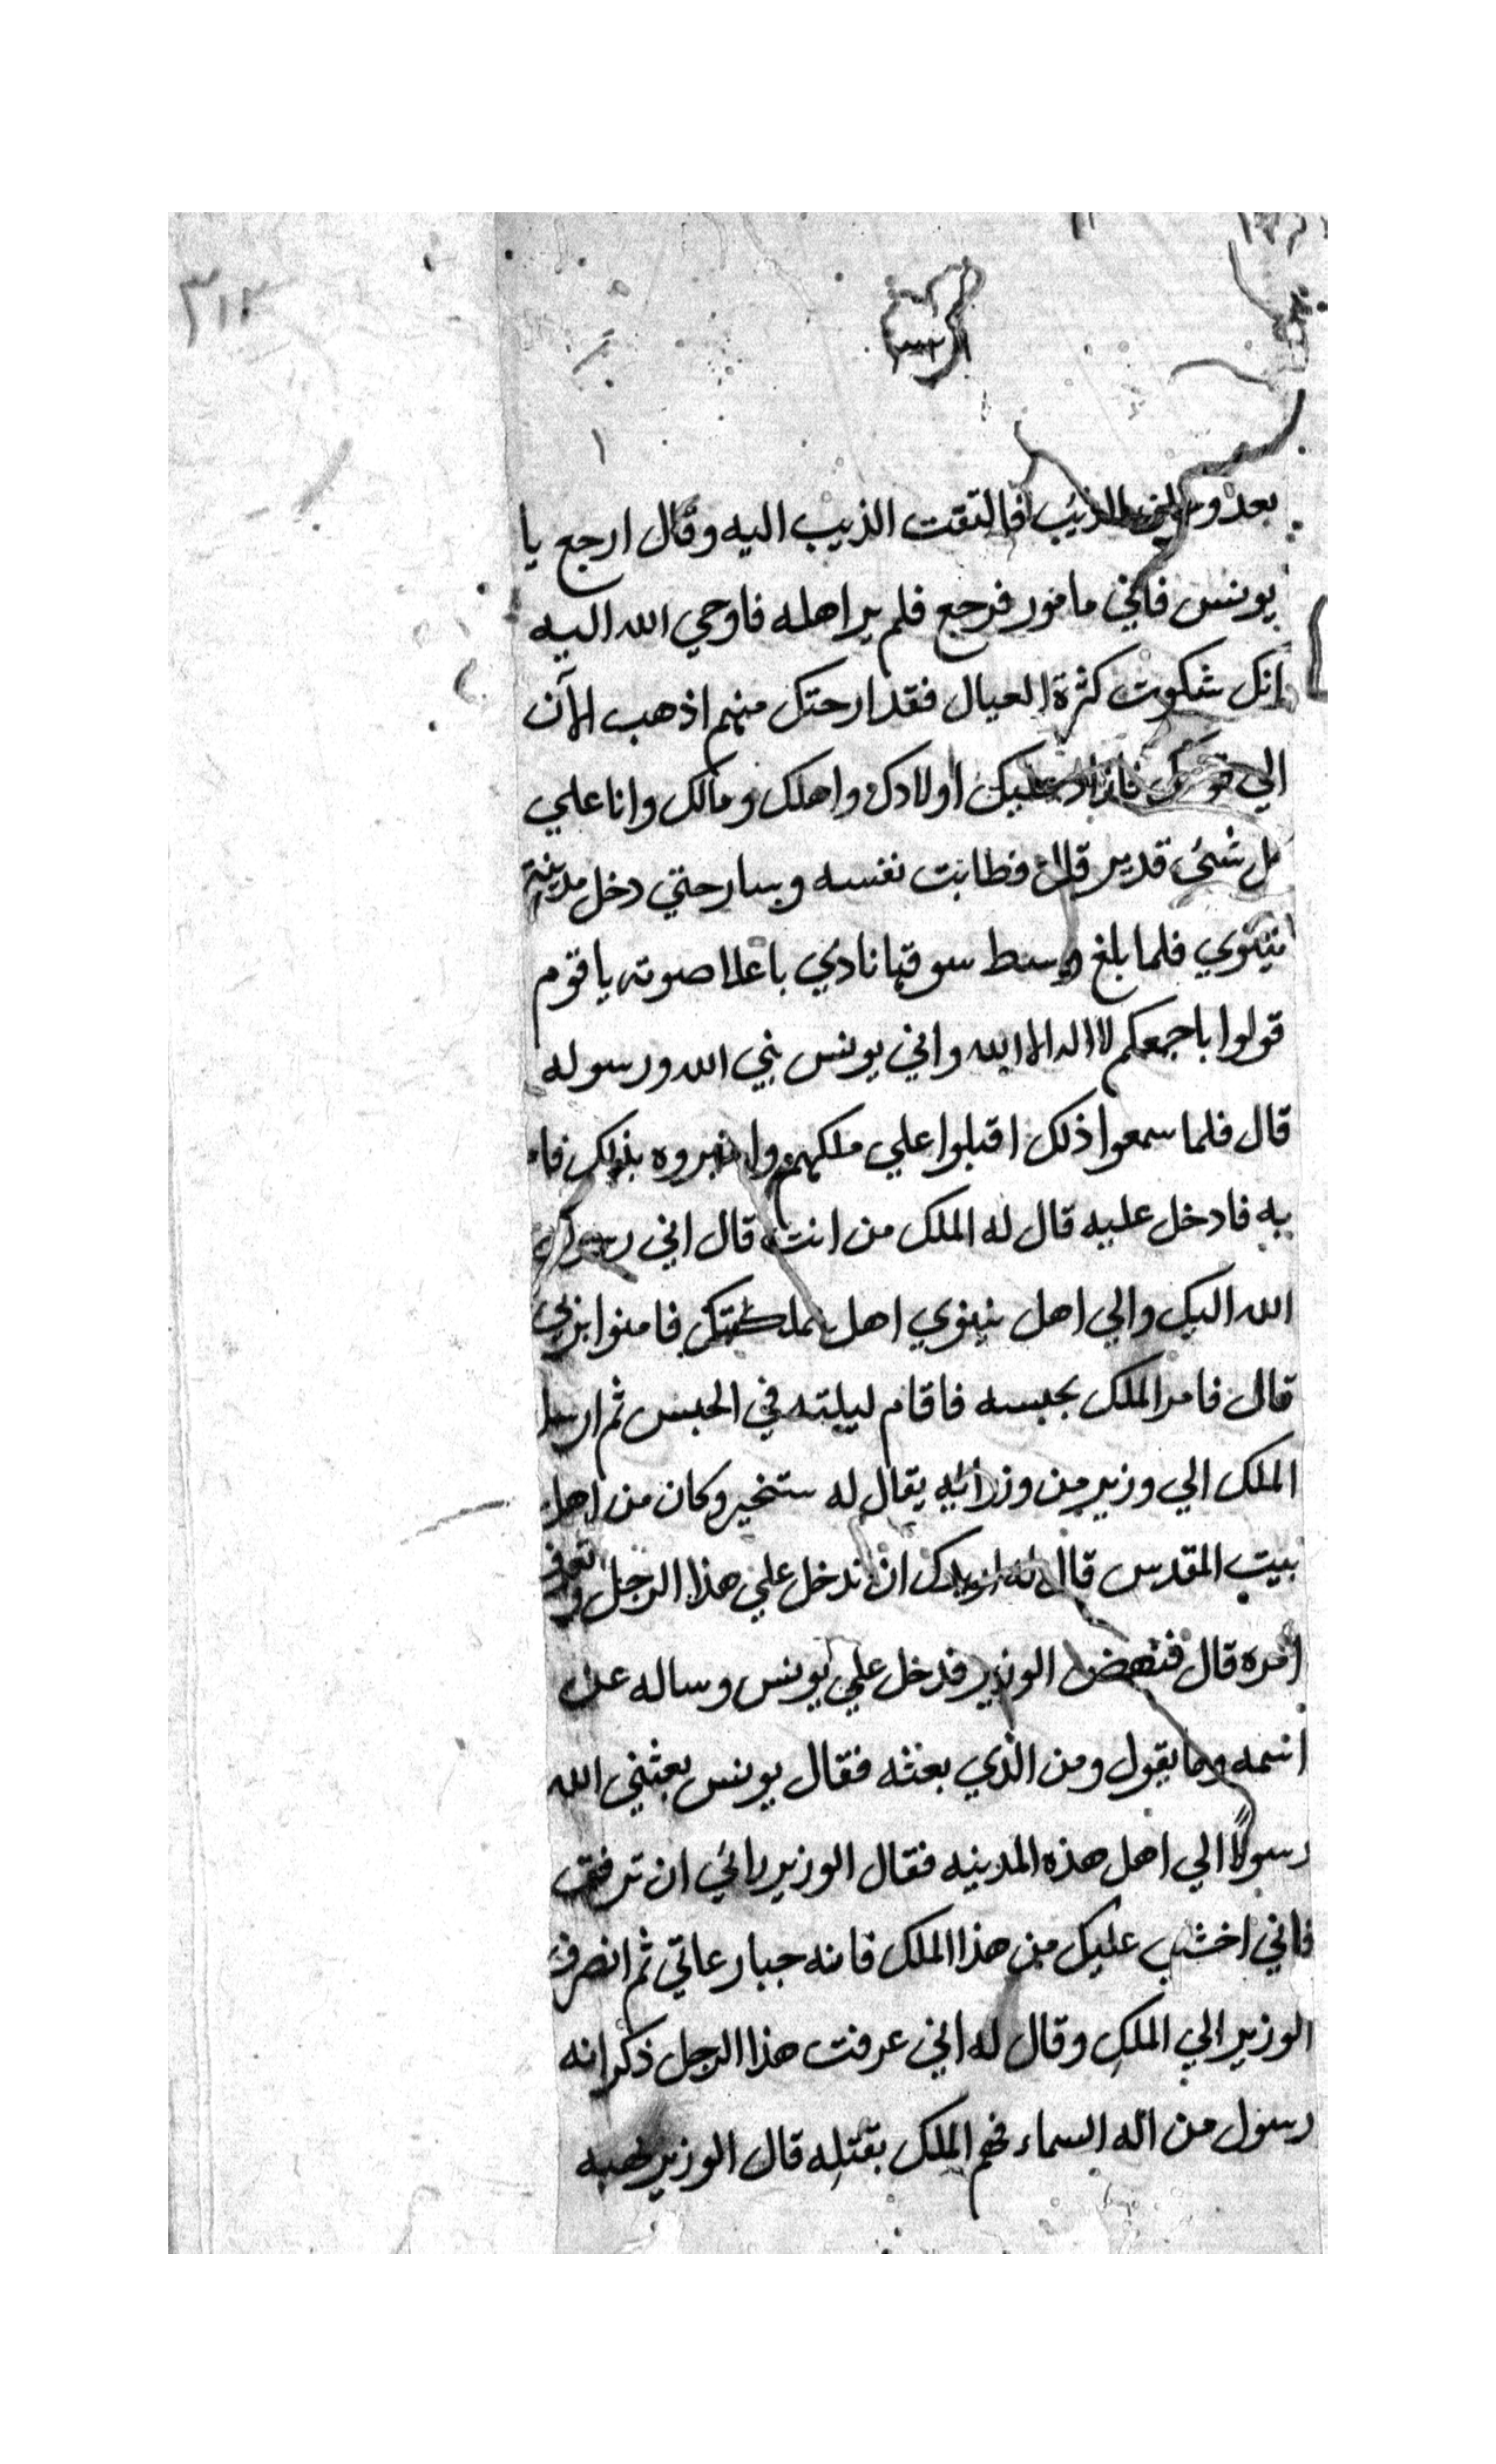 ٣١٣
بعدو الذئب فالتفت الذيب اليه وقال ارجع يا
يونس فاني مامور فرجع فلم ير اهله فاوحي الله اليه
انك شكوت كثرة العيال فقد ارحتك منهم اذهب الآن
الي عليك اولادك واهلك ومالك وانا علي
كل شئ قدير قال فطابت نفسه وسار حتي دخل مدينة
نينوي فلما بلغ وسط سوقها نادي باعلا صوته يا قوم
قولوا باجمعكم لا اله الا الله واني يونس نبي الله ورسوله
قال فلما سمعوا ذلك اقبلوا علي ملكهم واخبروه بذلك فا
به فادخل عليه قال له الملك من انت قال اني رسول
الله اليك والي اهل نينوي اهل مملكتك فامنوا بربي
قال فامر الملك بحبسه فاقام ليلته في الحبس ثم ارسل
الملك الي وزير من وزرائه يقال له سنخير وكان من اهل
بيت المقدس قال له اريدك ان تدخل علي هذا الرجل وتعرف
امره قال فنهض الوزير فدخل علي يونس وساله عن
اسمه وما يقول ومن الذي بعثه فقال يونس بعثني الله
رسولاً الي اهل هذه المدينه فقال الوزير رائي ان ترفق
فاني اخشي عليك من هذا الملك فانه جبار عاتي ثم انصرف
الوزير الي الملك وقال له اني عرفت هذا الرجل ذكر انه
رسول من اله السماء فهم الملك بقتله قال الوزير